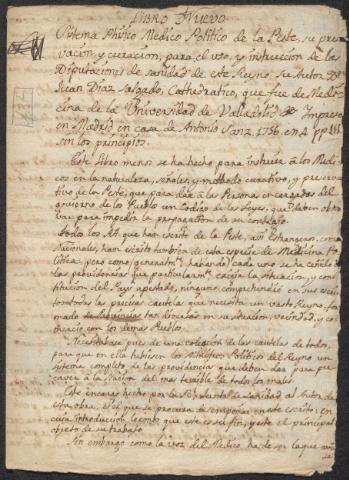 LIBRO NUEVO
Sistema Phisico Medico Politico de la Peste, su preser
vacion, y curacion, para el uso, y instruccion de las
Diputaciones de sanidad de este Reyno, su Autor Dn
Juan Diaz Salgado, Cathedratico, que fue de Medi
cina de la Universidad de Valladolid Impreso
en Madrid en casa de Antonio Sanz. 1756. en 4.
sin los principios.
Este libro menos se ha hecho para instruir à los Medi
cos en la naturaleza, señales, y methodo curativo, y preserva
tivo de la Peste, que para dar à las Personas encargadas del
govierno de los Pueblos un Codigo de las leyes, que deben obser
var para impedir la propagacion de un contagio.
Todos los AA. que han escrito de la Peste, assi Estrangeros, como
Nacionales, han escrito tambien de esta especie de Medicina Po
litica; pero como generalmte hablando cada uno se ha ceñido à
las providencias que particularmte exigia la situacion, y cons
titucion del Pays apestado, ninguno comprehendiò en sus escri
tos todas las precisas cautelas que necesita un vasto Reyno, for
mado de Provincias tan diversas en su situacion, vecindad, y co
mercio con los demas Pueblos.
Necesitabase pues de una coleccion de las cautelas de todos,
para que en ella tubiesen los Ministros Politicos del Reyno un
sistema completo de las providencias que deben dar para pre
caver à la Nacion del mas terrible de todos los males.
Este encargo hecho por la Suprema Junta de Sanidad al Autor de
esta obra, es el que se procura desempeñar en este escrito; en
cuya introduccion leemos que este es su fin, y este el principal
objeto de su trabajo.
Sin embargo como la voz del Medico ha de ser la que